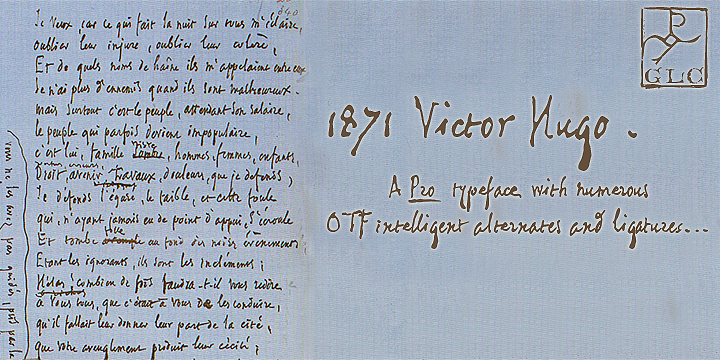 Je veux, car ce qui fait la nuit sur tous m'éclaire,
oublier leur injure, oublier leur colère,
Et de quels noms de haine ils m'appelaient entre eux
Je n'ai plus d'ennemis quand ils sont malheureux.
mais surtout c'est le peuple, attendant son salaire,
le peuple qui parfois devient impopulaire,
triste
c'est lui, famille, hommes, femmes, enfants,
Droit, avenir, travaux, douleurs, que je défends ;
Je défends l'égaré, le faible, et cette foule
qui, n'ayant jamais eu de point d'appui, s'écroule
folle
Et tombe au fond des noirs événements
Etant les ignorants, ils sont les incléments ;
Hélas ! combien de fois faudra-t-il vous redire
à vous tous, que c'était à vous de les conduire,
qu'il fallait leur donner leur part de la cité,
que votre aveuglement produit leur cécité ;
vous ne les avez pas guidés, pris par la
GLC
1871 Victor Hugo .
A Pro typeface with numerous
OTF intelligent alternates and ligatures...